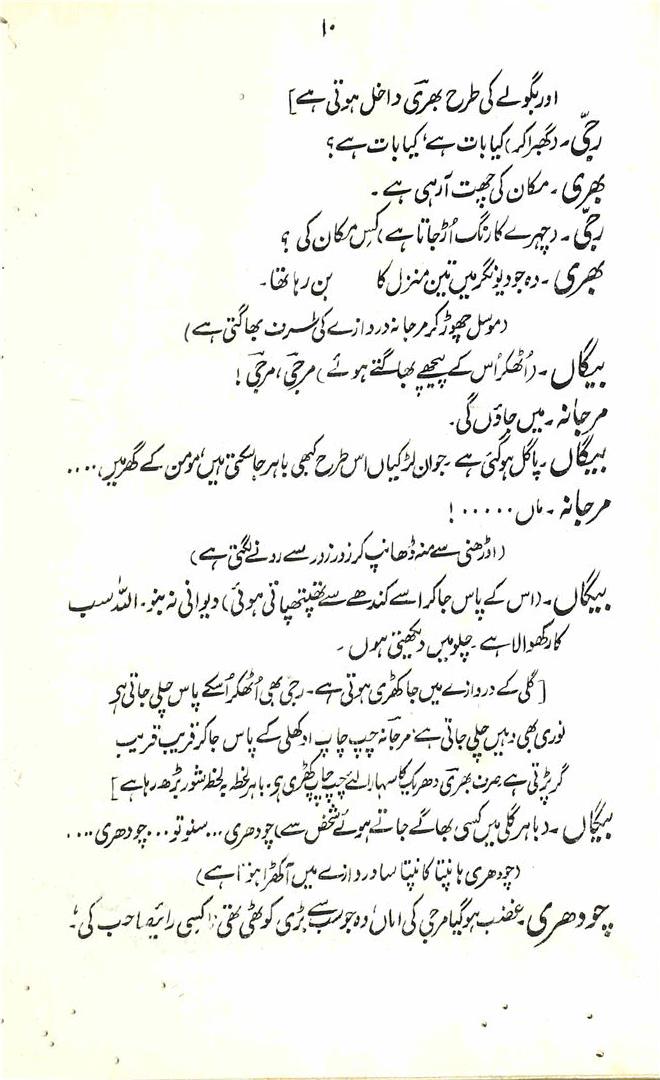 ۱۰
اور بگولے کی طرح بھری داخل ہوتی ہے]
رجی ۔ (گھبرا کر) کیا بات ہے، کیا بات ہے؟
بھری ۔ مکان کی چھت آ رہی ہے ۔
رجی ۔ (چہرے کا رنگ اُڑ جاتا ہے) کس مکان کی ؟
بھری ۔ وہ جو دیونگر میں تین منزل کا بن رہا تھا۔
(موسل چھوڑ کر مرجانہ دروازے کی طرف بھاگتی ہے)
بیگاں ۔ (اُٹھکر اُس کے پیچھے بھاگتے ہوئے) مرجی، مرجی !
مرجانہ ۔ میں جاؤں گی۔
بیگاں ۔ پاگل ہوگئی ہے ۔ جوان لڑکیاں اس طرح کبھی باہر جا سکتی ہیں، مومن کے گھر میں ....
مرجانہ ۔ ماں ..... !
(اوڑھنی سے منہ ڈھانپ کر زور زور سے رونے لگتی ہے)
بیگاں ۔ (اس کے پاس جا کر اسے کندھے سے تھپتھپاتی ہوئی) دیوانی نہ بنو ۔ اللہ سب
کا رکھوالا ہے ۔ چلو میں دیکھتی ہوں ۔
[ گلی کے دروازے میں جا کھڑی ہوتی ہے ۔ رجی بھی اُٹھکر اُسکے پاس چلی جاتی ہے
نوری بھی وہیں چلی جاتی ہے، مرجانہ چپ چاپ اوکھلی کے پاس جا کر قریب قریب
گر پڑتی ہے صرف بھری دھریک کا سہارا لئے چپ چاپ کھڑی ہے ۔ باہر لحظہ بہ لحظہ شور بڑھ رہا ہے ]
بیگاں ۔ (باہر گلی میں کسی بھاگے جاتے ہوئے شخص سے) چودھری ... سنو تو ... چودھری ...
(چودھری ہانپتا کانپتا سا دروازے میں آ کھڑا ہوتا ہے)
چودھری ۔ غضب ہو گیا مرجی کی اماں، وہ جو سب سے بڑی کوٹھی تھی، کسی رائے صاحب کی،